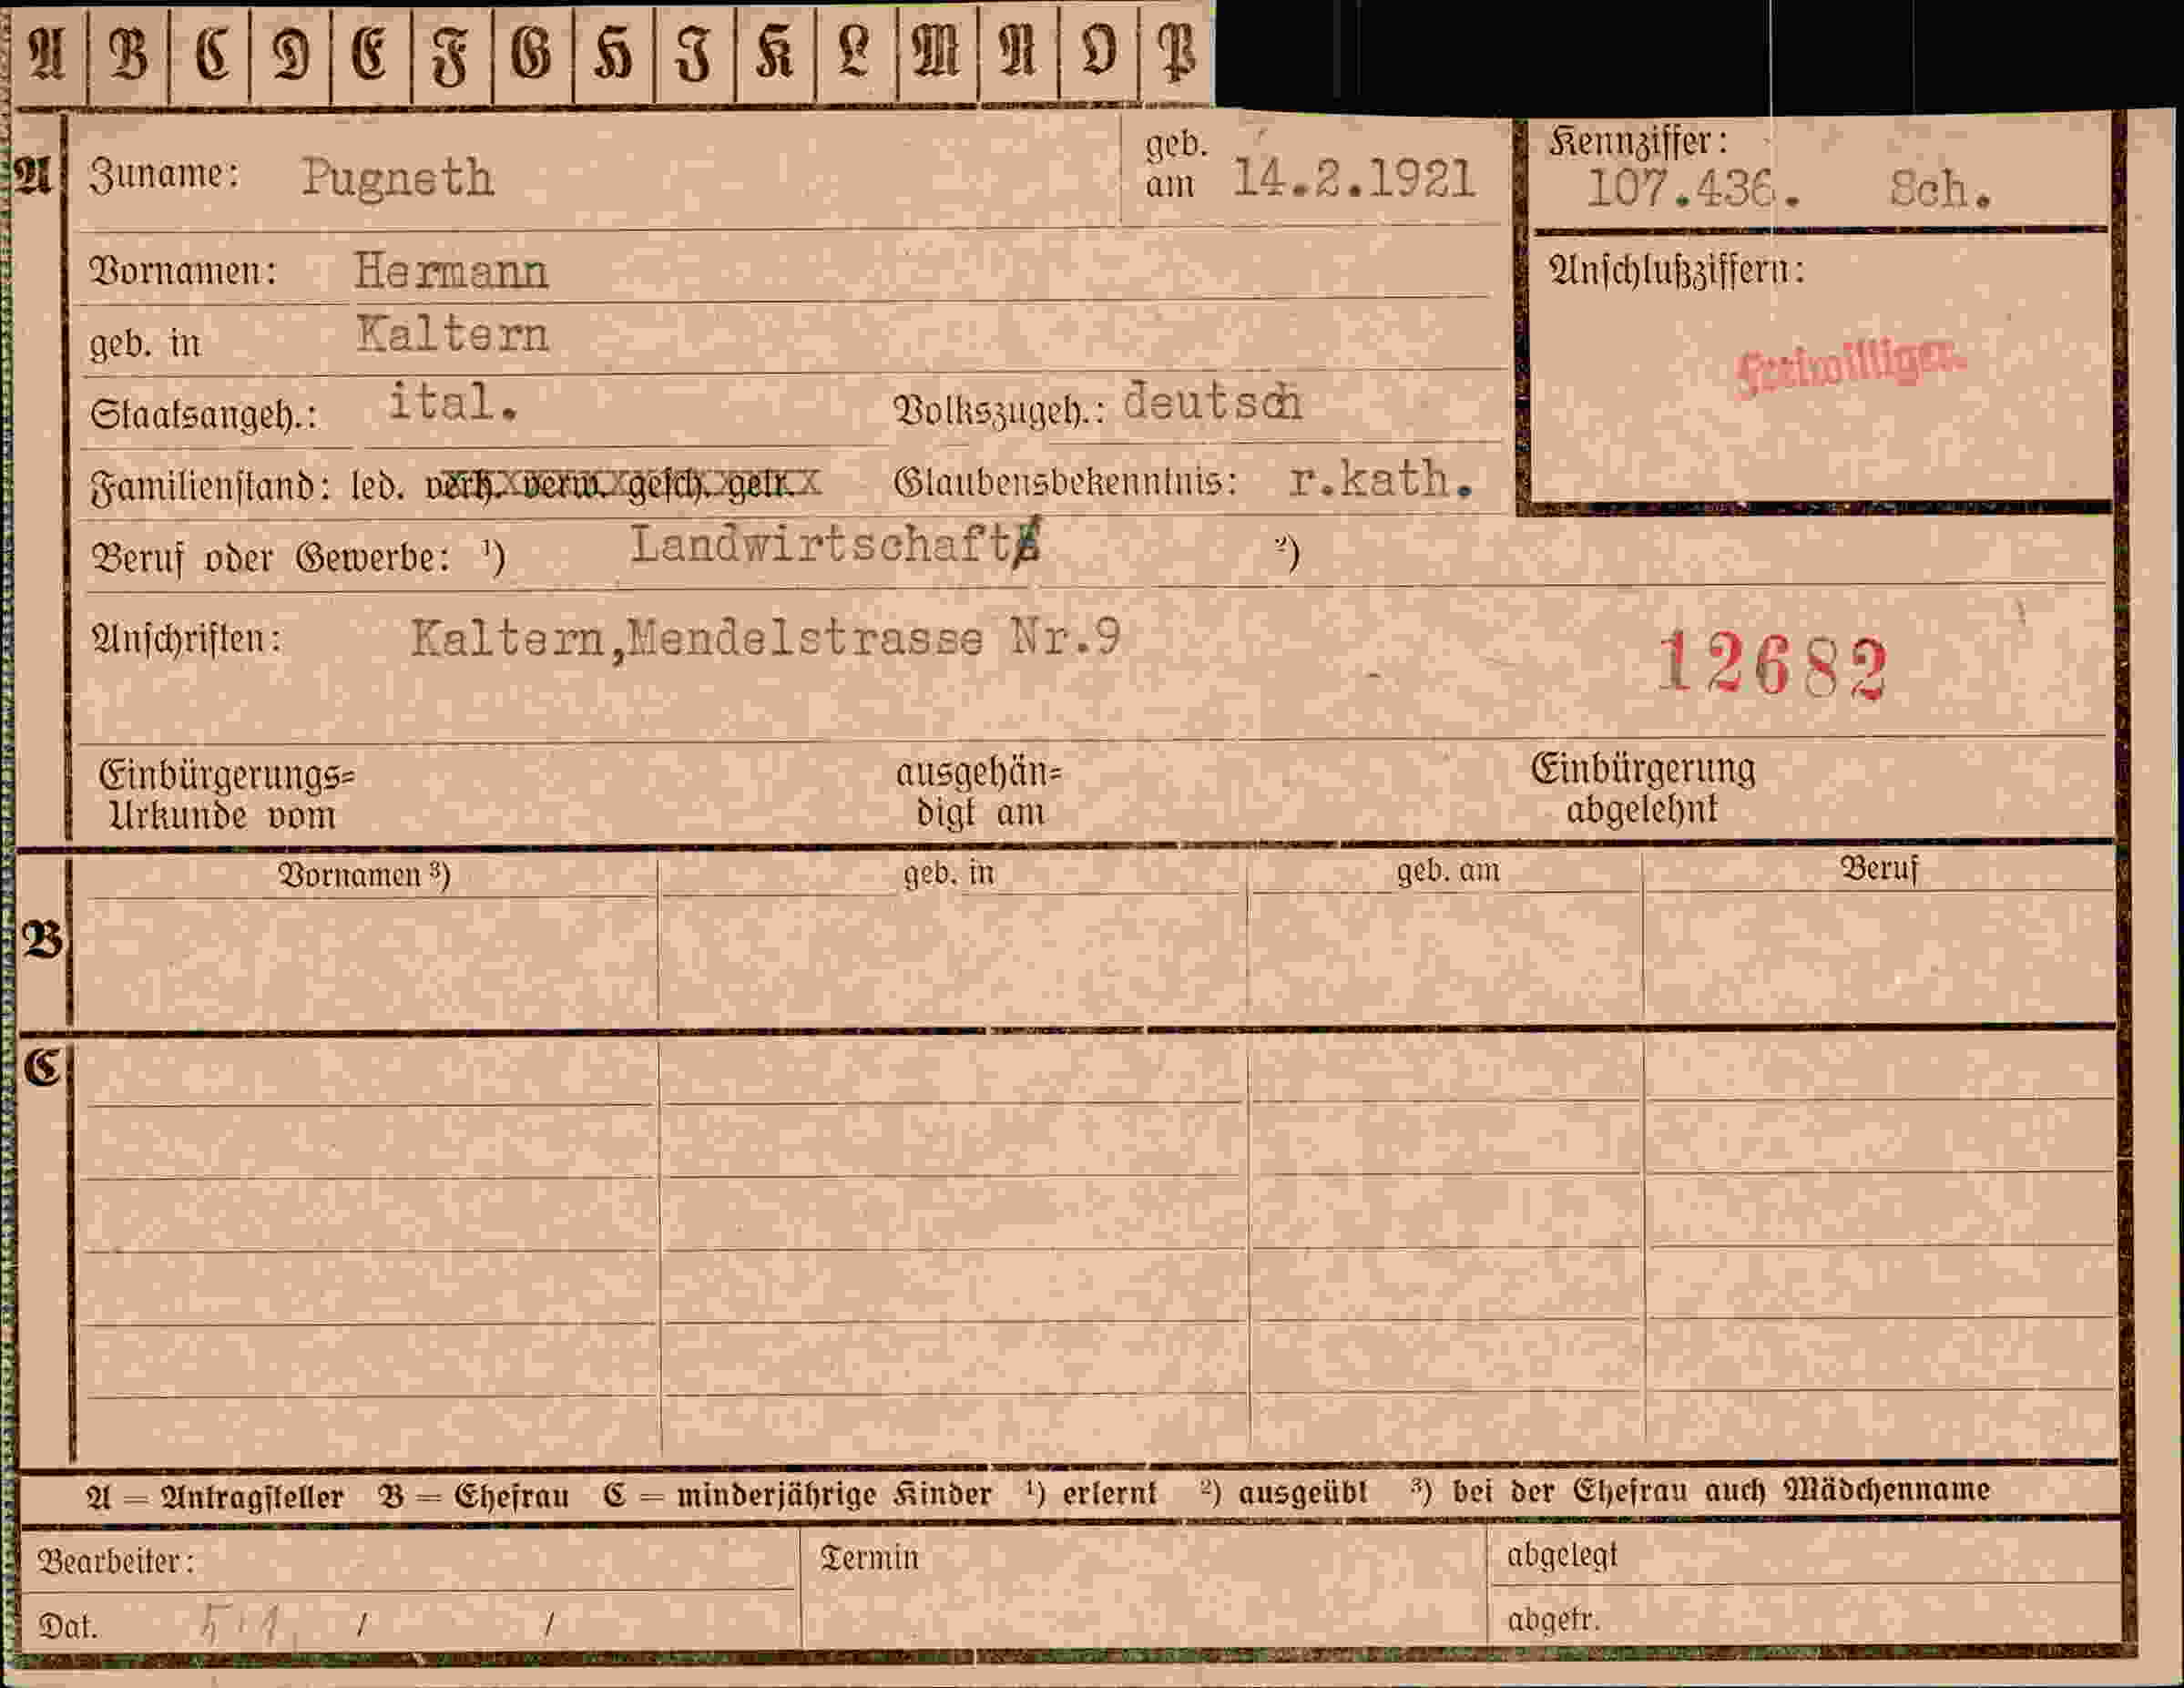 A B C D E F G H I K L M N O P
A Zuname: Pugneth geb. am 14.2.1921 Kennziffer: 107.436. Sch.
Vornamen: Hermann Anschlußziffern:
geb. in Kaltern Freiwilliger.
Staatsangeh.: ital. Volkszugeh.: deutsch
Familienstand: led. verh. verw. gesch. getr. Glaubensbekenntnis: r.kath.
Beruf oder Gewerbe: ¹) Landwirtschaft ²)
Anschriften: Kaltern,Mendelstrasse Nr.9 12682
Einbürgerungs= ausgehän= Einbürgerung
Urkunde vom digt am abgelehnt
Vornamen ³) geb. in geb. am Beruf
B
C
A = Antragsteller B = Ehefrau C = minderjährige Kinder ¹) erlernt ²) ausgeübt ³) bei der Ehefrau auch Mädchenname
Bearbeiter: Termin abgelegt
Dat. 5.1. / / abgetr.